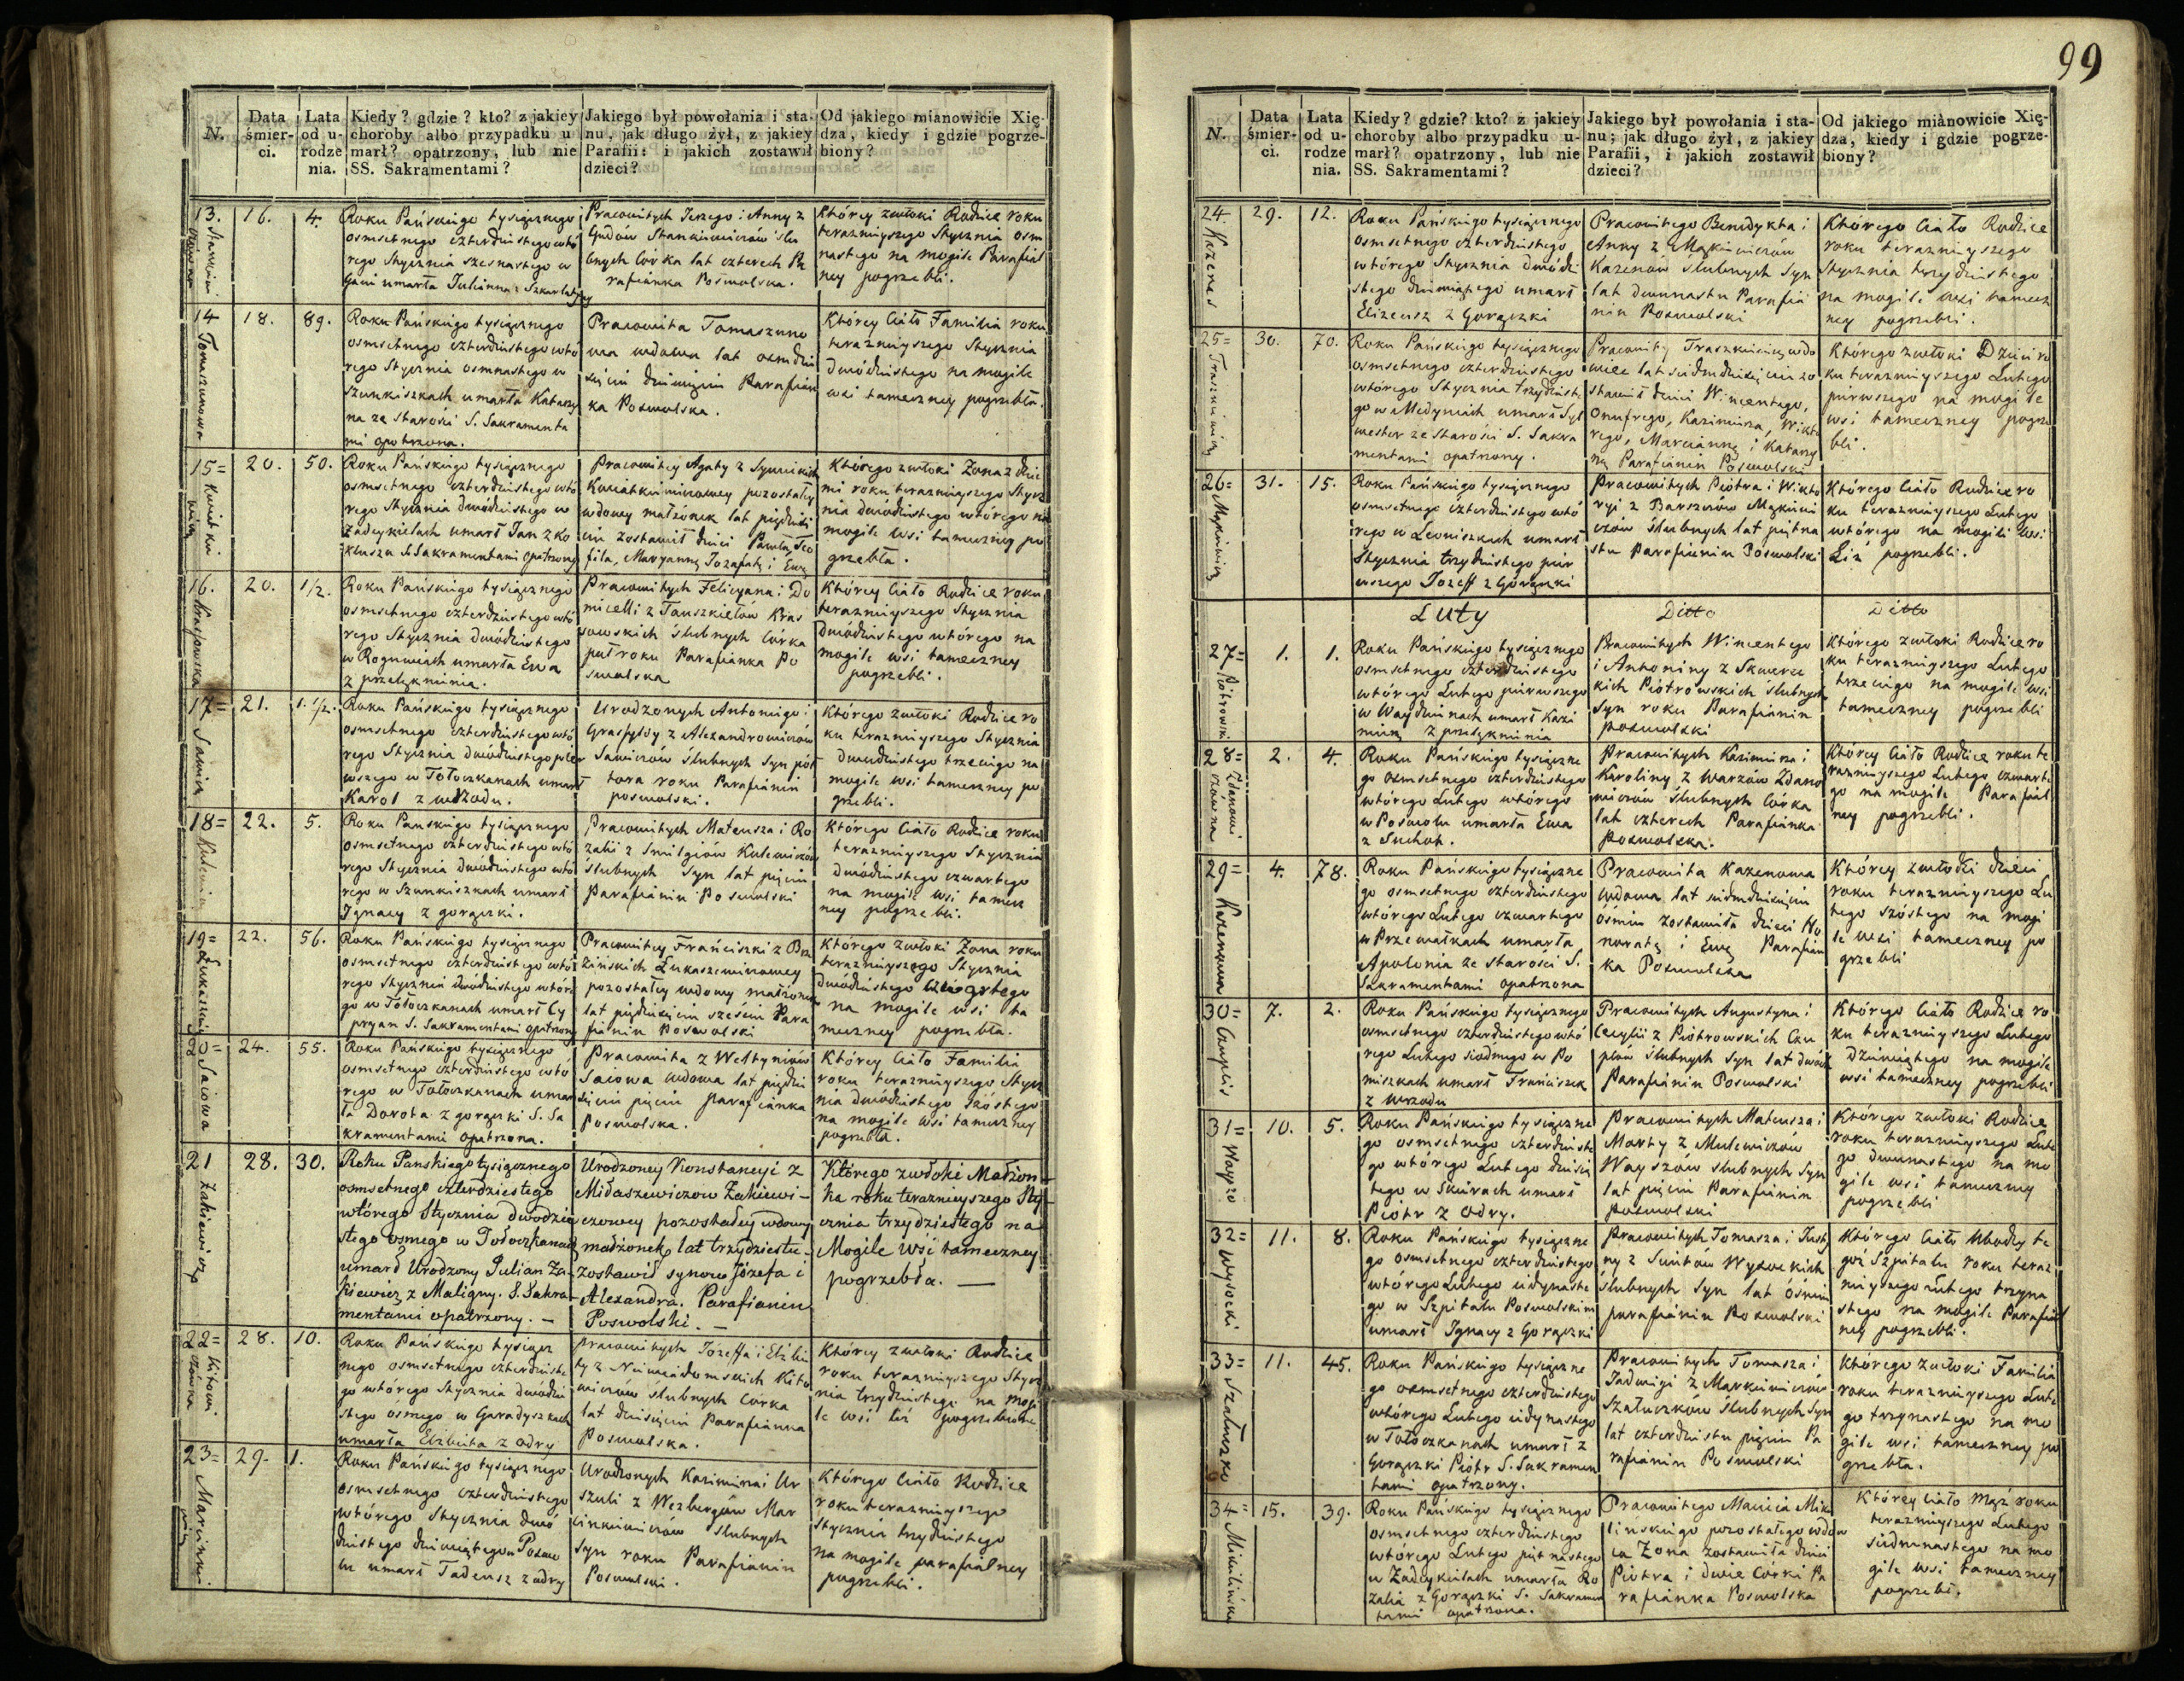 99
N.
Data śmierci.
Lata od urodzenia.
Kiedy? gdzie? kto? z jakiey
choroby albo przypadku u-
marł? opatrzony, lub nie
SS. Sakramentami?
Jakiego był powołania i sta-
nu, jak długo żył, z jakiey
Parafii: i jakich zostawił
dzieci?
Od jakiego mianowicie Xię-
dza, kiedy i gdzie pogrze-
biony?
13.
16.
4.
Roku Pańskiego tysiącznego
osmsetnego czterdziestego wtó
rego Stycznia szesnastego w
umarła Julianna z Szkarlatyny
Pracowitych Jerzego i Anny z
Gudów Stankiewiczów ślu
bnych Córka lat czterech Pa
rafianka Poswolska.
Którey zwłoki Rodzice roku
teraznieyszego Stycznia osm
nastego na mogile Parafial
ney pogrzebli.
14 Tomaszunowa
18.
89.
Roku Pańskiego tysiącznego
osmsetnego czterdziestego wtó
rego Stycznia osmnastego w
Szunkiszkach umarła Katarzy
na ze starości S. Sakramenta
mi opatrzona.
Pracowita Tomaszuno
wa wdowa lat osmdzie
sięciu dziewięciu Parafian
ka Poswolska.
Którey Ciało Familia roku
teraznieyszego Stycznia
Dwódziestego na mogile
wsi tameczney pogrzebła.
15=
20.
50.
Roku Pańskiego tysiącznego
osmsetnego czterdziestego wtó
rego Stycznia dwódziestego w
Zadeykielach umarł Jan z Ko
klusza S. Sakramentami opatrzony
Pracowitey Agaty z
Kwiatkiewiczowey pozostałey
wdowy małżonek lat pięćdziesię
ciu zostawił dzieci Pawła, Teo
fila, Maryannę Jozafatę i Ewę
Którego zwłoki Żona z dzie
mi roku teraznieyszego Stycz
nia dwódziestego wtórego na
mogile wsi tameczney po
grzebła.
16. Krassowska
20.
1/2.
Roku Pańskiego tysiącznego
osmsetnego czterdziestego wtó
rego Stycznia dwódziestego
w Roguwiach umarła Ewa
z przelęknienia.
Pracowitych Felicyana i Do
micelli z Tauszkiełów Kras
sowskich ślubnych Córka
puł roku Parafianka Po
swolska
Którey Ciało Rodzice roku
teraznieyszego Stycznia
Dwódziestego wtórego na
mogile wsi tameczney
pogrzebli.
17= Sawicz
21.
1. 1/2.
Roku Pańskiego tysiącznego
osmsetnego czterdziestego wtó
rego Stycznia dwódziestego pier
wszego w Tołoczkanach umarł
Karol z wrzodu.
Urodzonych Antoniego i
Graſyldy z Alexandrowiczów
Sawiczów ślubnych Syn poł
tora roku Parafianin
poswolski.
Którego zwłoki Rodzice ro
ku teraznieyszego Stycznia
dwudziestego trzeciego na
mogile wsi tameczney po
grzebli.
18=
22.
5.
Roku Pańskiego tysiącznego
osmsetnego czterdziestego wtó
rego Stycznia dwódziestego wtó
rego w Szunkiszkach umarł
Ignacy z gorączki.
Pracowitych Mateusza i Ro
zalii z Smilgiów Kulewiczów
ślubnych Syn lat pięciu
Parafianin Poswolski
Którego Ciało Rodzice roku
teraznieyszego Stycznia
dwódziestego czwartego
na mogile wsi tamecz
ney pogrzebli.
19=
22.
56.
Roku Pańskiego tysiącznego
osmsetnego czterdziestego wtó
rego Stycznia dwódziestego wtóre
go w Tołoczkanach umarł Cy
pryan S. Sakramentami opatrzony
Pracowitey Franciszki z
Łukaszewiczowey
pozostałey wdowy małżonek
lat pięćdziesięciu sześciu Para
fianin Poswolski
Którego zwłoki Żona roku
teraznieyszego Stycznia
Dwódziestego czwartego
na mogile wsi ta
meczney pogrzebła.
20= Saiowa
24.
55.
Roku Pańskiego tysiącznego
osmsetnego czterdziestego wtó
rego w Tołoczkanach umar
ła Dorota z gorączki S. Sa
kramentami opatrzona.
Pracowita z Wełtyniów
Saiowa wdowa lat pięćdzie
sięciu pięciu parafianka
Poswolska.
Którey Ciało Familia
roku teraznieyszego Stycz
nia dwódziestego szóstego
na mogile wsi tameczney
pogrzebła.
21 Zakiewicz
28.
30.
Roku Pańskiego tysiącznego
osmsetnego czterdziestego
wtórego Stycznia dwódzie
stego osmego w Tołoczkanach
umarł Urodzony Julian Za-
kiewicz z Maligny. S. Sakra-
mentami opatrzony. —
Urodzoney Konstancyi z
Midaszewiczow Zakiewi-
czowey pozostałey wdowy
małżonek, lat trzydziestu -
zostawił synow Józefa i
Alexandra. Parafianin
Poswolski. —
Którego zwłoki Małżon-
ka roku teraznieyszego Sty-
cznia trzydziestego na
Mogile wsi tameczney
pogrzebła. —
22=
28.
10.
Roku Pańskiego tysiącz
nego osmsetnego czterdzieste
go wtórego Stycznia dwódzie
stego ósmego w Garadyszkach
umarła Elzbieta z odry
pracowitych Jozeffa i Elzbie
ty z Niewiadomskich Kito
wiczów ślubnych Córka
lat dziesięciu Parafianka
Poswolska.
Którey zwłoki Rodzice
roku teraznieyszego Stycz
nia trzydziestego na mogi
le wsi pogrzebione
23=
29.
1.
Roku Pańskiego tysiącznego
osmsetnego czterdziestego
wtórego Stycznia dwó
dziestego dziewiątego w Poswo
lu umarł Tadeusz z odry
Urodzonych Kazimierza i Ur
szuli z Wezbergów Mar
cinkiewiczów ślubnych
Syn roku Parafianin
Poswolski.
Którego Ciało Rodzice
roku teraznieyszego
stycznia trzydziestego
na mogile parafialney
pogrzebli.
N.
Data śmierci.
Lata od urodzenia.
Kiedy? gdzie? kto? z jakiey
choroby albo przypadku u-
marł? opatrzony, lub nie
SS. Sakramentami?
Jakiego był powołania i sta-
nu; jak długo żył, z jakiey
Parafii, i jakich zostawił
dzieci?
Od jakiego mianowicie Xię-
dza, kiedy i gdzie pogrze-
biony?
24. Kazenas
29.
12.
Roku Pańskiego tysiącznego
osmsetnego czterdziestego
wtórego Stycznia dwódzie
stego dziewiątego umarł
Elizeusz z Gorączki
Pracowitego Benedykta i
Anny z Mąkiewiczów
Kazenów ślubnych Syn
lat dwunastu Parafia
nin Poswolski
Którego Ciało Rodzice
roku teraznieyszego
Stycznia trzydziestego
na mogile wsi tamecz
ney pogrzebli.
25=
30.
70.
Roku Pańskiego tysiącznego
osmsetnego czterdziestego
wtórego Stycznia trzydzieste
go w Medyniach umarł Syl
wester ze starości S. Sakra
mentami opatrzony.
Pracowity Traszkiewicz wdo
wiec lat siedmdziesięciu zo
stawił dzieci Wincentego,
Onufrego, Kazimierza, Wikto
rego, Marciannę i Katarzy
nę Parafianin Poswolski
Którego zwłoki Dzieci ro
ku teraznieyszego Lutego
pierwszego na mogile
wsi tameczney pogrze
bli.
26= Mąkiewicz
31.
15.
Roku Pańskiego tysiącznego
osmsetnego czterdziestego wtó
rego w Leoniszkach umarł
Stycznia trzydziestego pier
wszego Jozeff z Gorączki
Pracowitych Piotra i Wikto
ryi z Barszczów Mąkiewi
czów ślubnych lat piętna
stu Parafianin Poswolski
Którego Ciało Rodzice ro
ku teraznieyszego Lutego
wtórego na mogile wsi
pogrzebli.
Luty
Ditto
Ditto
27= Piotrowski
1.
1.
Roku Pańskiego tysiącznego
osmsetnego czterdziestego
wtórego Lutego pierwszego
w Waydziunach umarł Kazi
mierz z przelęknienia
Pracowitych Wincentego
i Antoniny z Skwerec
kich Piotrowskich ślubnych
Syn roku Parafianin
poswolski
Którego zwłoki Rodzice ro
ku teraznieyszego Lutego
trzeciego na mogile wsi
tameczney pogrzebli
28= Zdanowi
czowna
2.
4.
Roku Pańskiego tysiączne
go osmsetnego czterdziestego
wtórego Lutego wtórego
w Poswolu umarła Ewa
z Suchot.
Pracowitych Kazimierza i
Karoliny z Warzów Zdano
wiczów ślubnych Córka
lat czterech Parafianka
Poswolska.
Którey Ciało Rodzice roku te
raznieyszego Lutego czwarte
go na mogile Parafial
ney pogrzebli.
29= Kazenowa
4.
78.
Roku Pańskiego tysiączne
go osmsetnego czterdziestego
wtórego Lutego czwartego
w Przewałkach umarła
Apolonia ze starości S.
Sakramentami opatrzona
Pracowita Kazenowa
Wdowa lat siedmdziesięciu
ośmiu zostawiła dzieci Ho
noratę i Ewę Parafian
ka Poswolska
Którey zwłoki dzieci
roku teraznieyszego Lu
tego szóstego na mogi
le wsi tameczney po
grzebli
30= Czuplis
7.
2.
Roku Pańskiego tysiącznego
osmsetnego czterdziestego wtó
rego Lutego siodmego w Po
miszkach umarł Franciszek
z wrzodu
Pracowitych Augustyna i
Cecylii z Piotrowskich Czu
plów ślubnych Syn lat dwóch
Parafianin Poswolski
Którego Ciało Rodzice ro
ku teraznieyszego Lutego
Dziewiątego na mogile
wsi tameczney pogrzebli
31= Wayszo
10.
5.
Roku Pańskiego tysiączne
go osmsetnego czterdzieste
go wtórego Lutego dziesią
tego w Skórach umarł
Piotr z odry.
Pracowitych Mateusza i
Marty z Mulewiczów
Wayszów ślubnych Syn
lat pięciu Parafianin
poswolski
Którego zwłoki Rodzice
roku teraznieyszego Lute
go dwunastego na mo
gile wsi tameczney
pogrzebli
32= Wysocki
11.
8.
Roku Pańskiego tysiączne
go osmsetnego czterdziestego
wtórego Lutego iedynaste
go w Szpitalu Poswolskim
umarł Ignacy z Gorączki
Pracowitych Tomasza i Justy
ny z Wysockich
ślubnych Syn lat óśmiu
parafianin Poswolski
Którego Ciało Ubodzy te
goż Szpitalu roku teraz
nieyszego Lutego trzyna
stego na mogile Parafial
ney pogrzebli.
33= Szałuczko
11.
45.
Roku Pańskiego tysiączne
go osmsetnego czterdziestego
wtórego Lutego iedynastego
w Tołoczkanach umarł z
Gorączki Piotr S. Sakramen
tami opatrzony.
Pracowitych Tomasza i
Jadwigi z Markiewiczów
Szałuczków ślubnych Syn
lat czterdziestu pięciu Pa
rafianin Poswolski
Którego zwłoki Familia
roku teraznieyszego Lute
go trzynastego na mo
gile wsi tameczney po
grzebła.
34=
15.
39.
Roku Pańskiego tysiącznego
osmsetnego czterdziestego
wtórego Lutego piętnastego
w Zadeykielach umarła Ro
zalia z Gorączki S. Sakramen
tami opatrzona.
Pracowitego Macieia Miku
lińskiego pozostałego wdow
ca Żona zostawiła dzieci
Piotra i dwie Córki Pa
rafianka Poswolska
Którey Ciało Mąż roku
teraznieyszego Lutego
siedmnastego na mo
gile wsi tameczney
pogrzebł.